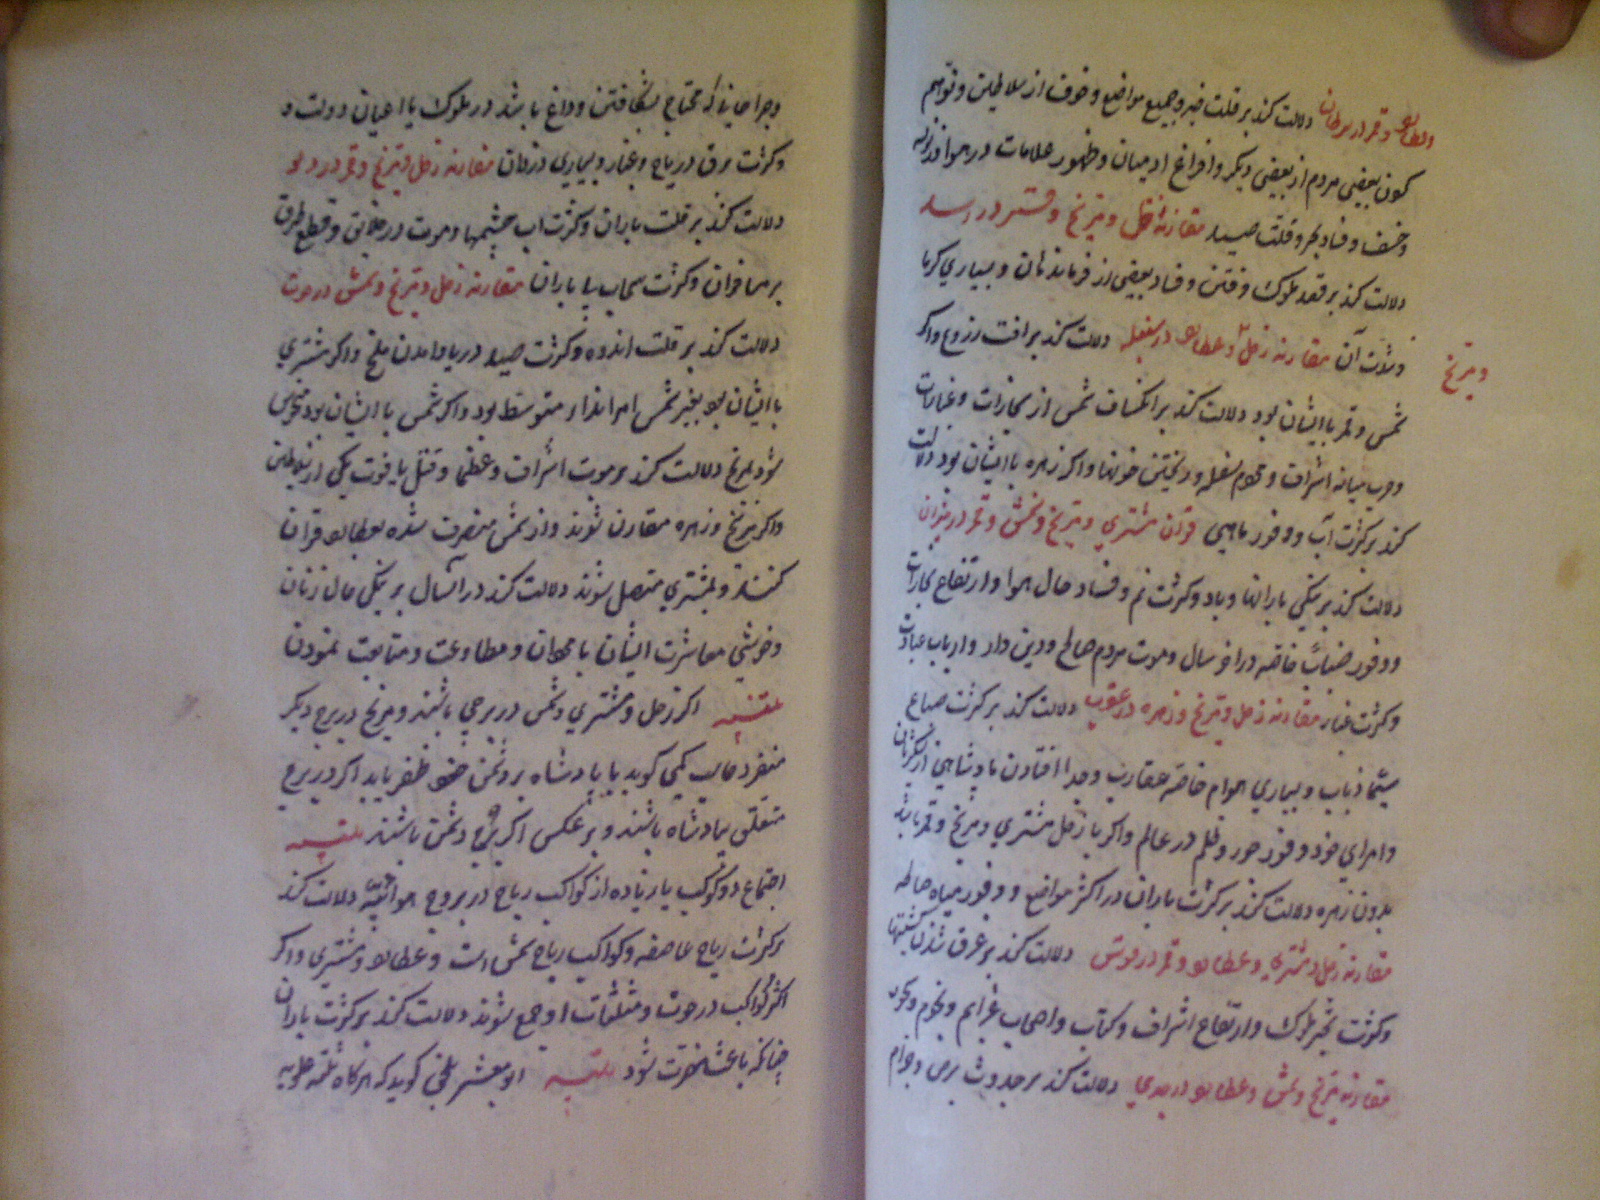 وعطارد وقمر در سرطان دلالت کند بر قلت خیر وجمیع مواضع وخوف از سلاطین وتوهم
کون بعضی مردم از بعضی دیکر و افراغ ادمیان وظهور علامات در هوا وزلزله
وخسف وفساد بحر وقلت صید مقارنه زحل ومریخ ومشتری در اسد
دلالت کند بر قصد ملوک وفتن وفساد بعضی از فرماندهان وبسیاری کرما
وشدت آن مقارنه زحل وعطارد در سنبله دلالت کند بر افت زروع واکر
ومریخ
شمس وقمر با ایشان بود دلالت کند بر انکساف شمس از بخارات وغبارات
وحرب میانه اشراف ومردم سفله وریختن خونها واکر زهره با ایشان بود دلالت
کند بر کثرت آب ووفور ماهی قران مشتری ومریخ وشمس وقمر در میزان
دلالت کند بر نیکی بارانها وباد وکثرت نم وفساد حال هوا وارتفاع بخارات
ووفور ضباب خاصه در اخر سال وموت مردم صالح ودین دار وارباب عبادت
وکثرت غبار مقارنه زحل ومریخ وزهره در عقرب دلالت کند بر کثرت سباع
سیما ذباب وبسیاری هوام خاصه عقارب وجدا افتادن پادشاهی از لشکریان
وامرای خود ووفور جور وظلم در عالم واکر با زحل مشتری ومریخ وقمر باشد
بدون زهره دلالت کند بر کثرت باران در اکثر مواضع ووفور میاه
مقارنه زحل ومشتری وعطارد وقمر در قوس دلالت کند بر غرق شدن کشتیها
وکثرت تحیر ملوک وارتفاع اشراف وکتاب واصحاب عزایم ونجوم
مقارنه مریخ وشمس وعطارد در جدی دلالت کند بر حدوث برص وجذام
وجراحاتی که محتاج بشکافتن وداغ باشد در ملوک یا اعیان دولت و
وکثرت برق وریاح وغبار وبیماری در زنان مقارنه زحل ومریخ وقمر در دلو
دلالت کند بر قلت باران وکثرت اب چشمها وموت در خلایق وقطع طرق
بر مسافران وکثرت سحاب بی باران مقارنه زحل ومریخ وشمس در حوت
دلالت کند بر قلت اندوه وکثرت صید دریا وامدن ملخ واکر مشتری
با ایشان بود بغیر شمس امر انذار متوسط بود واکر شمس با ایشان بود ومنحوس
شود بمریخ دلالت کند بر موت اشراف وعظما وقتل یا فوت یکی از سلاطین
واکر مریخ وزهره مقارن شوند واز شمس منصرف شده بعطارد قران
کنند وبمشتری متصل شوند دلالت کند در انسال بر نیکی حال زنان
وخوشی معاشرت ایشان با مردان ومطاوعت ومتابعت نمودن
تنبیه اکر زحل ومشتری وشمس در برجی باشند ومریخ در برج دیکر
منفرد جالب کمی کوید پادشاه بر دشمن خود ظفر یابد اکر در برج
متعلق بپادشاه باشند وبر عکس اکر ببرج دشمن باشند تنبیه
اجتماع دو کوکب یا زیاده از کواکب ریاح در بروج هوائیه دلالت کند
بر کثرت ریاح عاصفه وکواکب ریاح شمس است وعطارد ومشتری واکر
اکثر کواکب در حوت ومثلثات او جمع شوند دلالت کند بر کثرت باران
چنانکه باعث مضرت شود تنبیه ابو معشر بلخی کوید که هرکاه ثلثه علویه